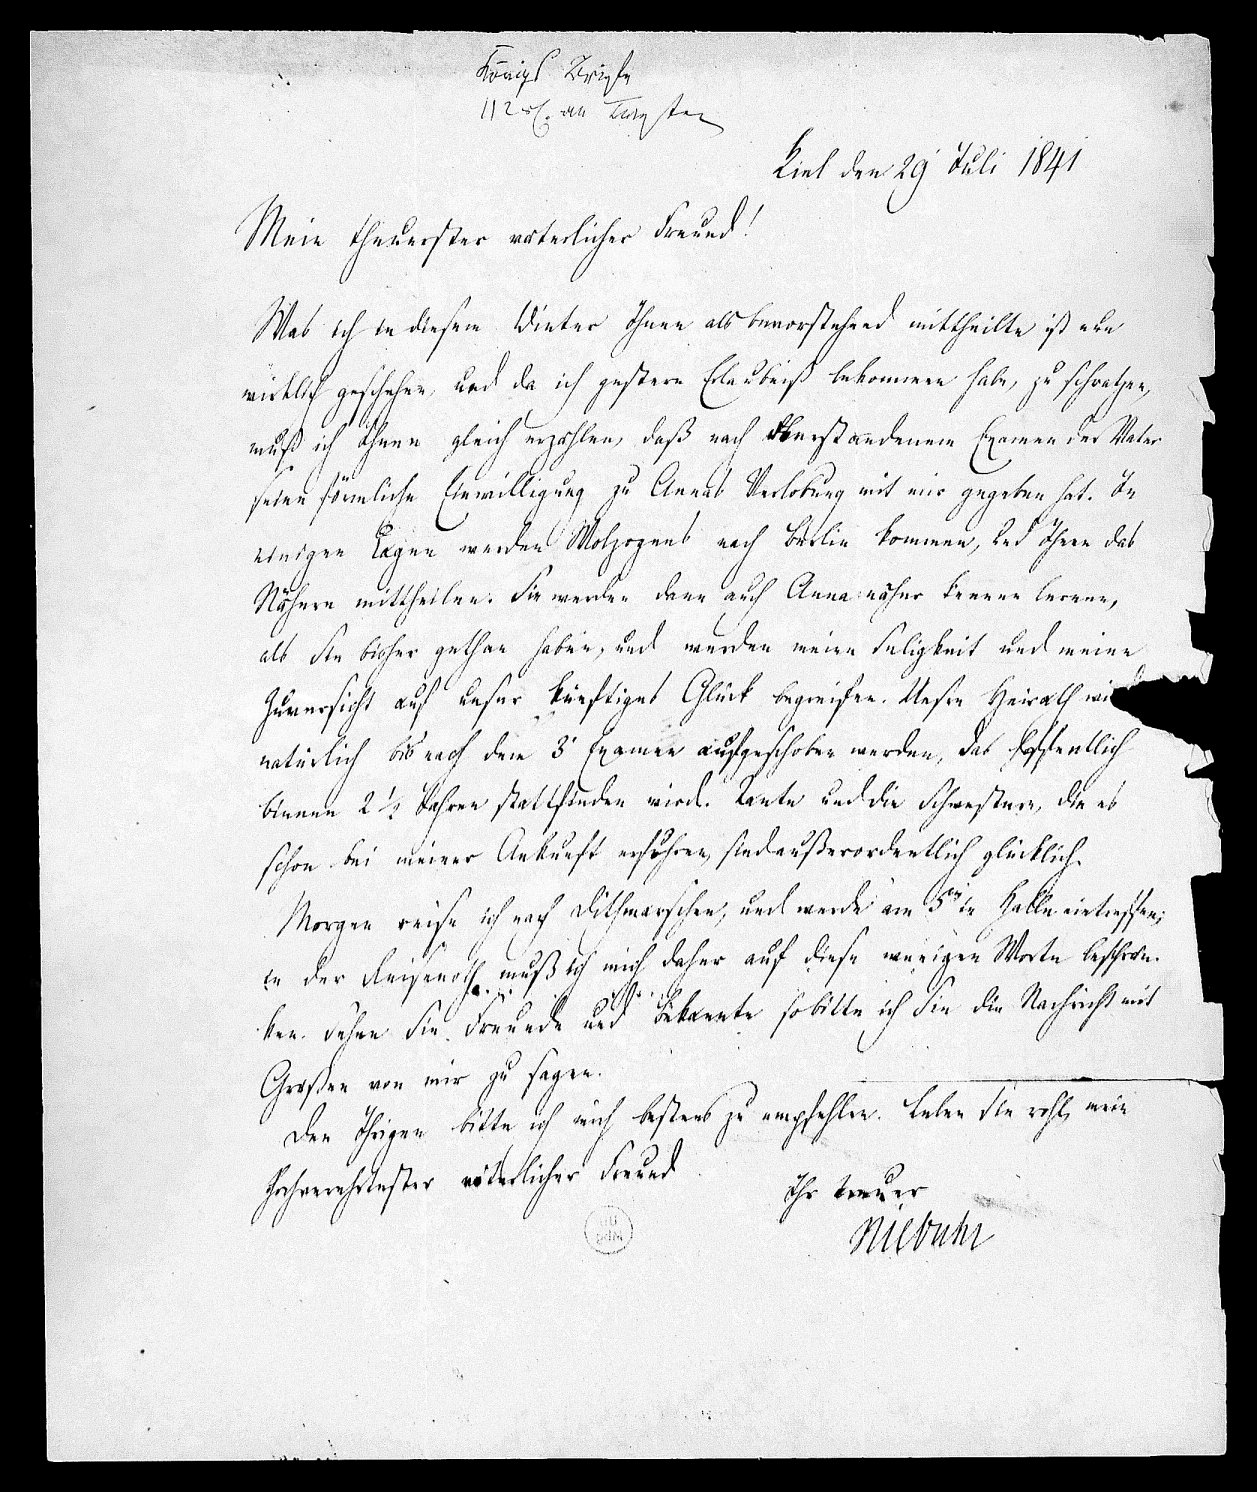 Königs Briefe
112 an
Kiel den 29 Juli 1841
Mein theuerster väterlicher Freund!
Was ich in diesem Winter Ihnen als bevorstehend mittheilte ist nun
wirklich geschehen, und da ich gestern Erlaubniß bekommen habe, zu schwatzen,
muß ich Ihnen gleich erzählen, daß nach überstandenem Examen der Vater
seine förmliche Einwilligung zu Annas Verlobung mit mir gegeben hat. In
einigen Tagen werden Wolzogens nach Berlin kommen, und Ihnen das
Nähere mittheilen. Sie werden dann auch Anna näher kennen lernen,
als Sie bisher gethan haben, und werden meine Seligkeit und meine
Zuversicht auf unser künftiges Glück begreifen. Unsre Heirath wi
natürlich bis nach dem 3 Examen aufgeschoben werden, das hoffentlich
binnen 2 1/2 Jahren stattfinden wird. Tante und die Schwestern, die es
schon bei meiner Ankunft erfuhren, sind außerordentlich glücklich.
Morgen reise ich nach Dithmarschen, und werde am 5 in Halle eintreffen;
in der Reisenoth muß ich mich daher auf diese wenigen Worte beschrän-
ken. Sehen Sie Freunde und Bekannte so bitte ich Sie die Nachricht mit
Grüßen von mir zu sagen.
Den Ihrigen bitte ich mich bestens zu empfehlen. Leben Sie wohl, mein
hochverehrtester väterlicher Freund
Ihr treuer
Niebuhr